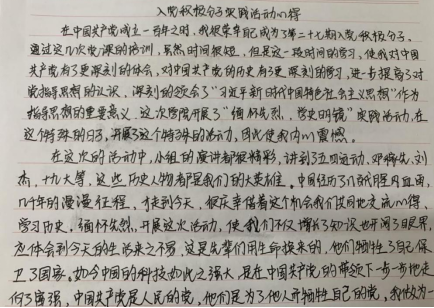 入党积极分子实践活动心得
在中国共产党成立一百年之时,我很荣幸自己成为了第二十七期入党积极分子。
通过这几次党课的培训,虽然时间很短,但是这一段时间的学习,使我对中国
共产党有了更深刻的体会,对中国共产党的历史有了更深刻的学习,进一步提高了对
党指导思想的认识,深刻的领会了“习近平新时代中国特色社会主义思想”作为
指导思想的重要意义。这次学院开展了“缅怀先烈、学史明镜”实践活动,在
这个特殊的日子,开展这个特殊的活动,因此使我内心震撼。
在这次的活动中,小组的演讲都很精彩,讲到了五四运动、邓稀先、刘
杰、十九大等,这些历史人物都是我们的大英雄。中国经历了几代腥风血雨,
几千年的漫漫征程,才走到今天,很庆幸借着这个机会我们共同地交流心得、
学习历史。缅怀先烈,开展这次活动,使我们不仅增长了知识也开阔了眼界,
也体会到今天的生活来之不易,这是先辈们用生命换来的,他们牺牲了自己保
卫了国家。如今中国的科技如此之强大,是在中国共产党的带领下一步一步地走
向了富强,中国共产党是人民的党,他们是为了他人而牺牲自己的党,我做为一